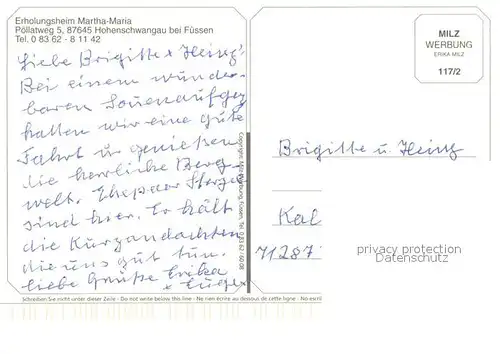 Erholungsheim Martha-Maria
Pöllatweg 5, 87645 Hohenschwangau bei Füssen
Tel. 0 83 62 - 8 11 42
Liebe Brigitte + Heinz!
Bei einem wunder-
baren Sonnenaufgang
hatten wir eine gute
Fahrt u. genießen
die herrliche Berg-
welt. Ehepaar
sind hier. Er hält
die Kurzandachten
die uns gut tun.
liebe Grüße Erika
Schreiben Sie nicht unter dieser Zeile - Do not write below this line - Ne rien écrire au dessous de cette ligne - No escribir
Copyright: Milz-Werbung, Füssen, Tel. 0 83 62 / 60 08
MILZ
WERBUNG
ERIKA MILZ
117/2
Brigitte u. Heinz
Kal
71287
privacy protection
Datenschutz